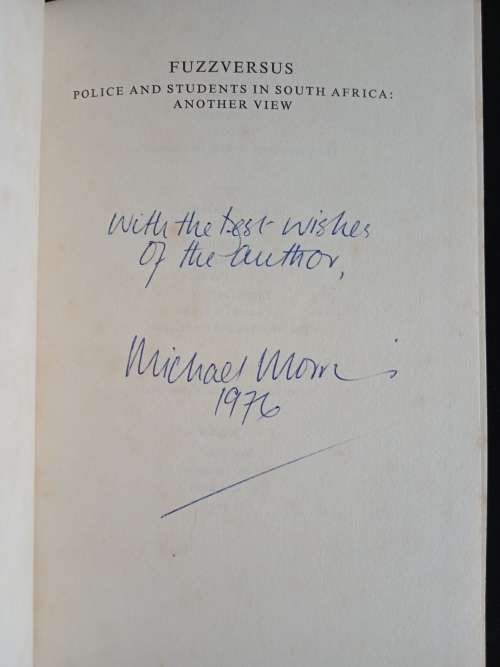 FUZZVERSUS
POLICE AND STUDENTS IN SOUTH AFRICA:
ANOTHER VIEW
With the best wishes
of the author,
Michael Morris
1976